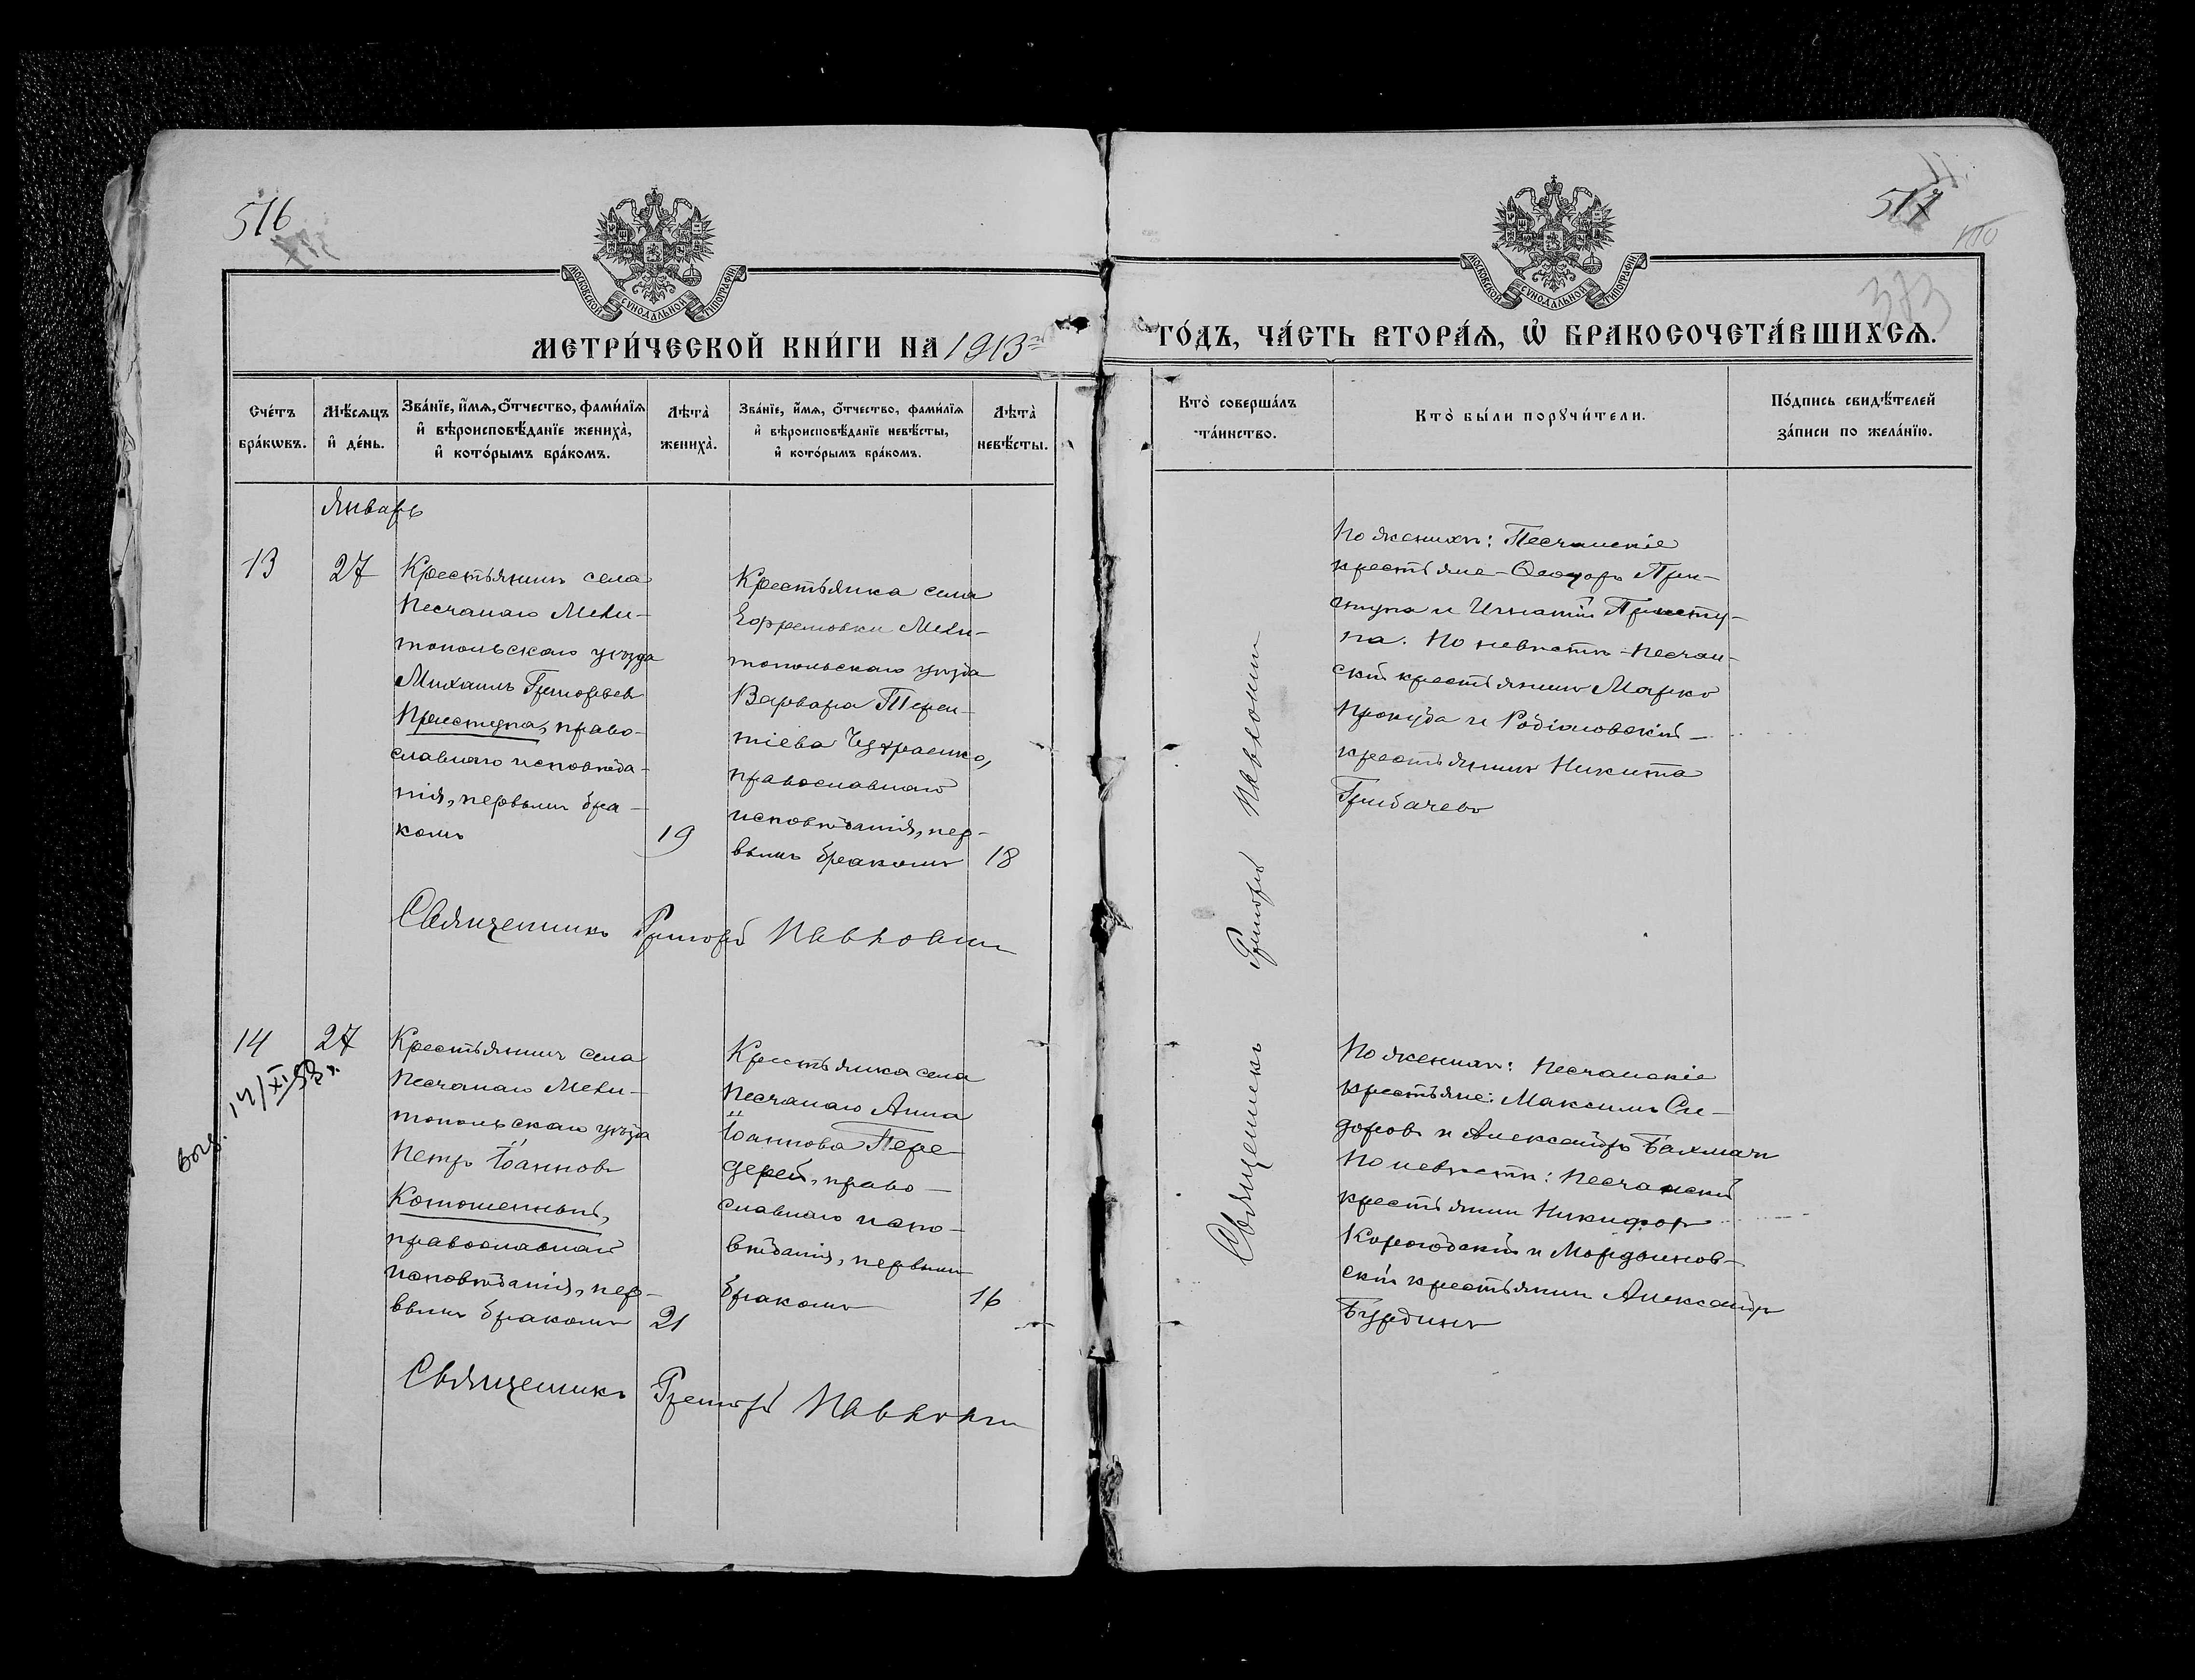 516
517
373
МОСКОВСКОЙ СѴНОДАЛЬНОЙ ТИПОГРАФІИ
МОСКОВСКОЙ СѴНОДАЛЬНОЙ ТИПОГРАФІИ
МЕТРИ́ЧЕСКОЙ КНИ́ГИ НА 1913 ГО́ДЪ, ЧА́СТЬ ВТОРА́Ѧ, Ѡ҆ БРАКОСОЧЕТА́ВШИХСѦ.
Сче́тъ бра́кѡвъ.
Мѣ́сяцъ и҆ де́нь.
Зва́нїе, и҆́мѧ, ѻ҆́тчество, фами́лїѧ и҆ вѣроисповѣ́данїе жениха̀, и҆ кото́рымъ бра́комъ.
Лѣта̀ жениха̀.
Зва́нїе, и҆́мѧ, ѻ҆́тчество, фами́лїѧ и҆ вѣроисповѣ́данїе невѣ́сты, и҆ кото́рымъ бра́комъ.
Лѣта̀ невѣ́сты.
Кто̀ соверша́лъ та́инство.
Кто̀ бы́ли порꙋчи́тели.
По́дпись свидѣ́телей за́писи по жела́нїю.
Январь
13
27
Крестьянинъ села
Песчанаго Мели-
топольскаго уѣзда
Михаилъ Григорьевъ
Приступа, право-
славнаго исповѣда-
нія, первымъ бра-
комъ
19
Крестьянка села
Ефремовки Мели-
топольскаго уѣзда
Варвара Терен-
тіева
православнаго
исповѣданія, пер-
вымъ бракомъ
18
Священникъ Григорій Павловичъ
По женихѣ: Песчанскіе
крестьяне - Ѳеодоръ При-
ступа и Игнатій Присту-
па. По невѣстѣ - Песчан-
скій крестьянинъ Марко
Прокуда и Родіоновскій
крестьянинъ Никита
Грибачевъ
Священникъ Григорій Павловичъ
14
27
выд. 14/XI 53 г.
Крестьянинъ села
Песчанаго Мели-
топольскаго уѣзда
Петръ Іоанновъ
православнаго
исповѣданія, пер-
вымъ бракомъ
21
Крестьянка села
Песчанаго Анна
Іоаннова Пере-
дерей, право-
славнаго испо-
вѣданія, первымъ
бракомъ
16
Священникъ Григорій Павловичъ
По женихѣ: Песчанскіе
крестьяне: Максимъ Си-
доровъ и Александръ Бахмачъ
По невѣстѣ: Песчанскій
крестьянинъ Никифоръ
Корогодскій и Мордвинов-
скій крестьянинъ Александръ
Бурдинъ